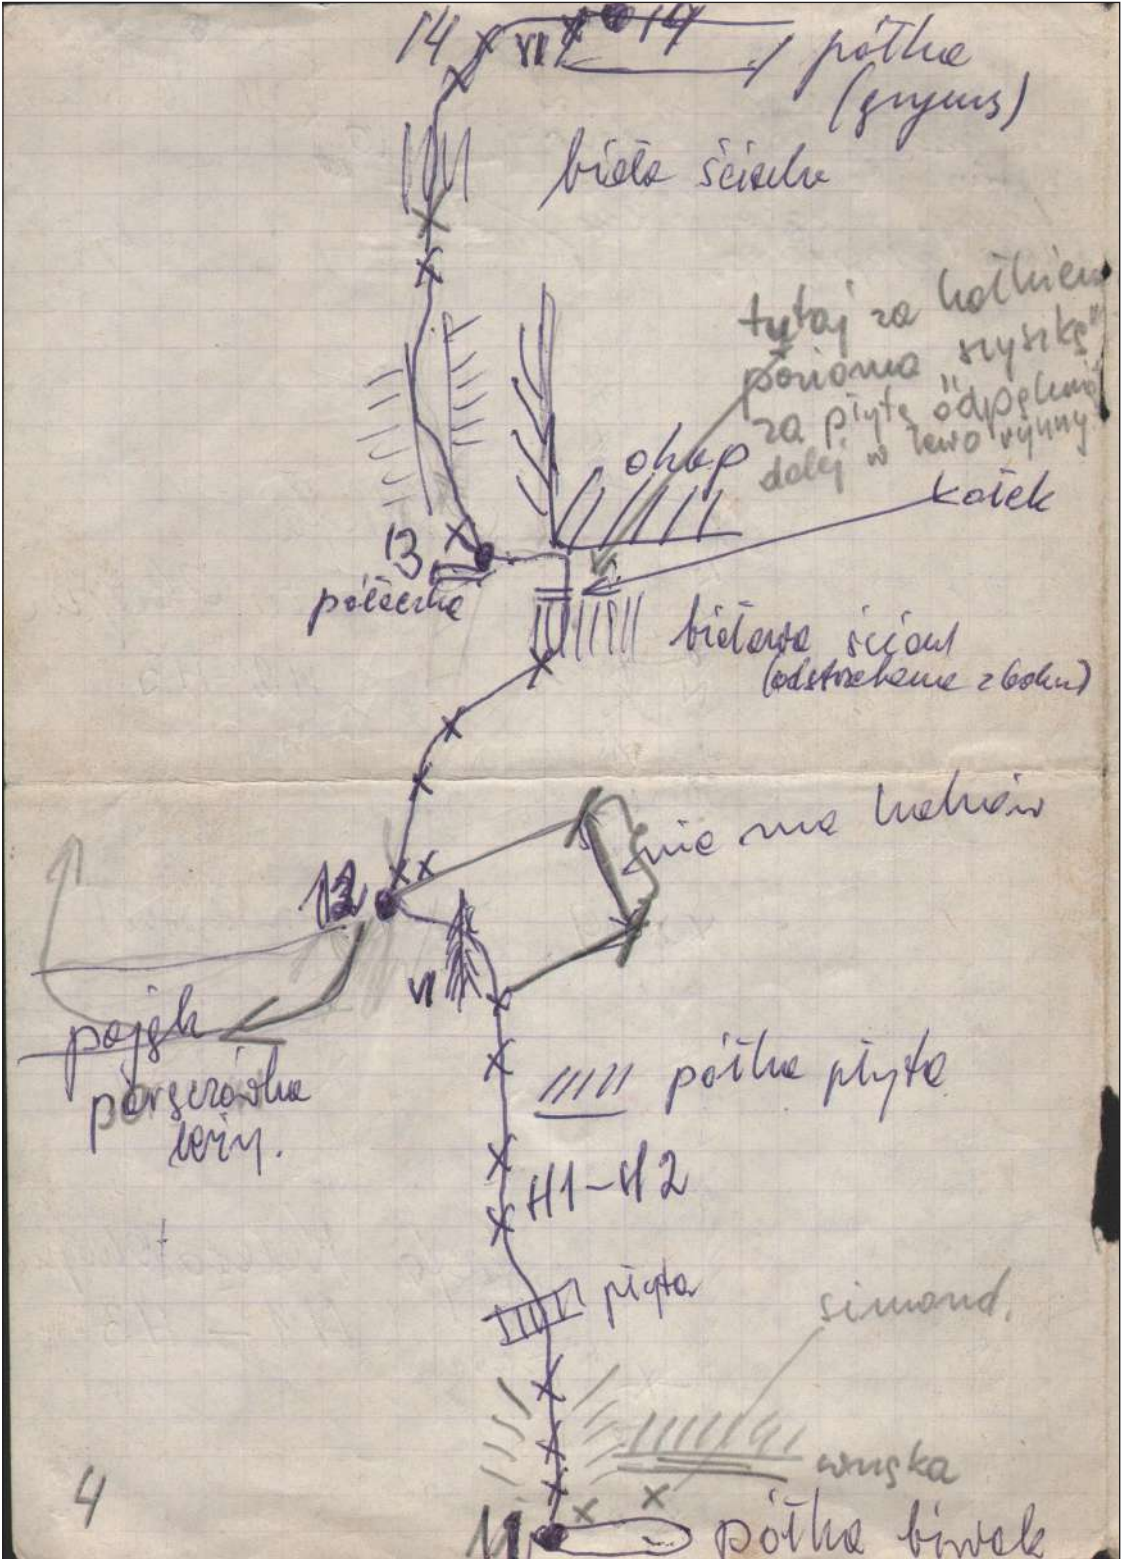 14 VI 14
półka
(grzęms)
biała ścianka
tytaj za kołkiem
pozioma "szyszkę"
za płytę odpęknię
dalej w lewo rynny.
okap
kołek
13
półeczka
biaława ścian
(odstrzelona z boku)
nie ma haków
12
VI
pająk
poręczówka
leży.
półka płyta
H1-H2
płyta
simond.
wnęka
4
11
półka biwak